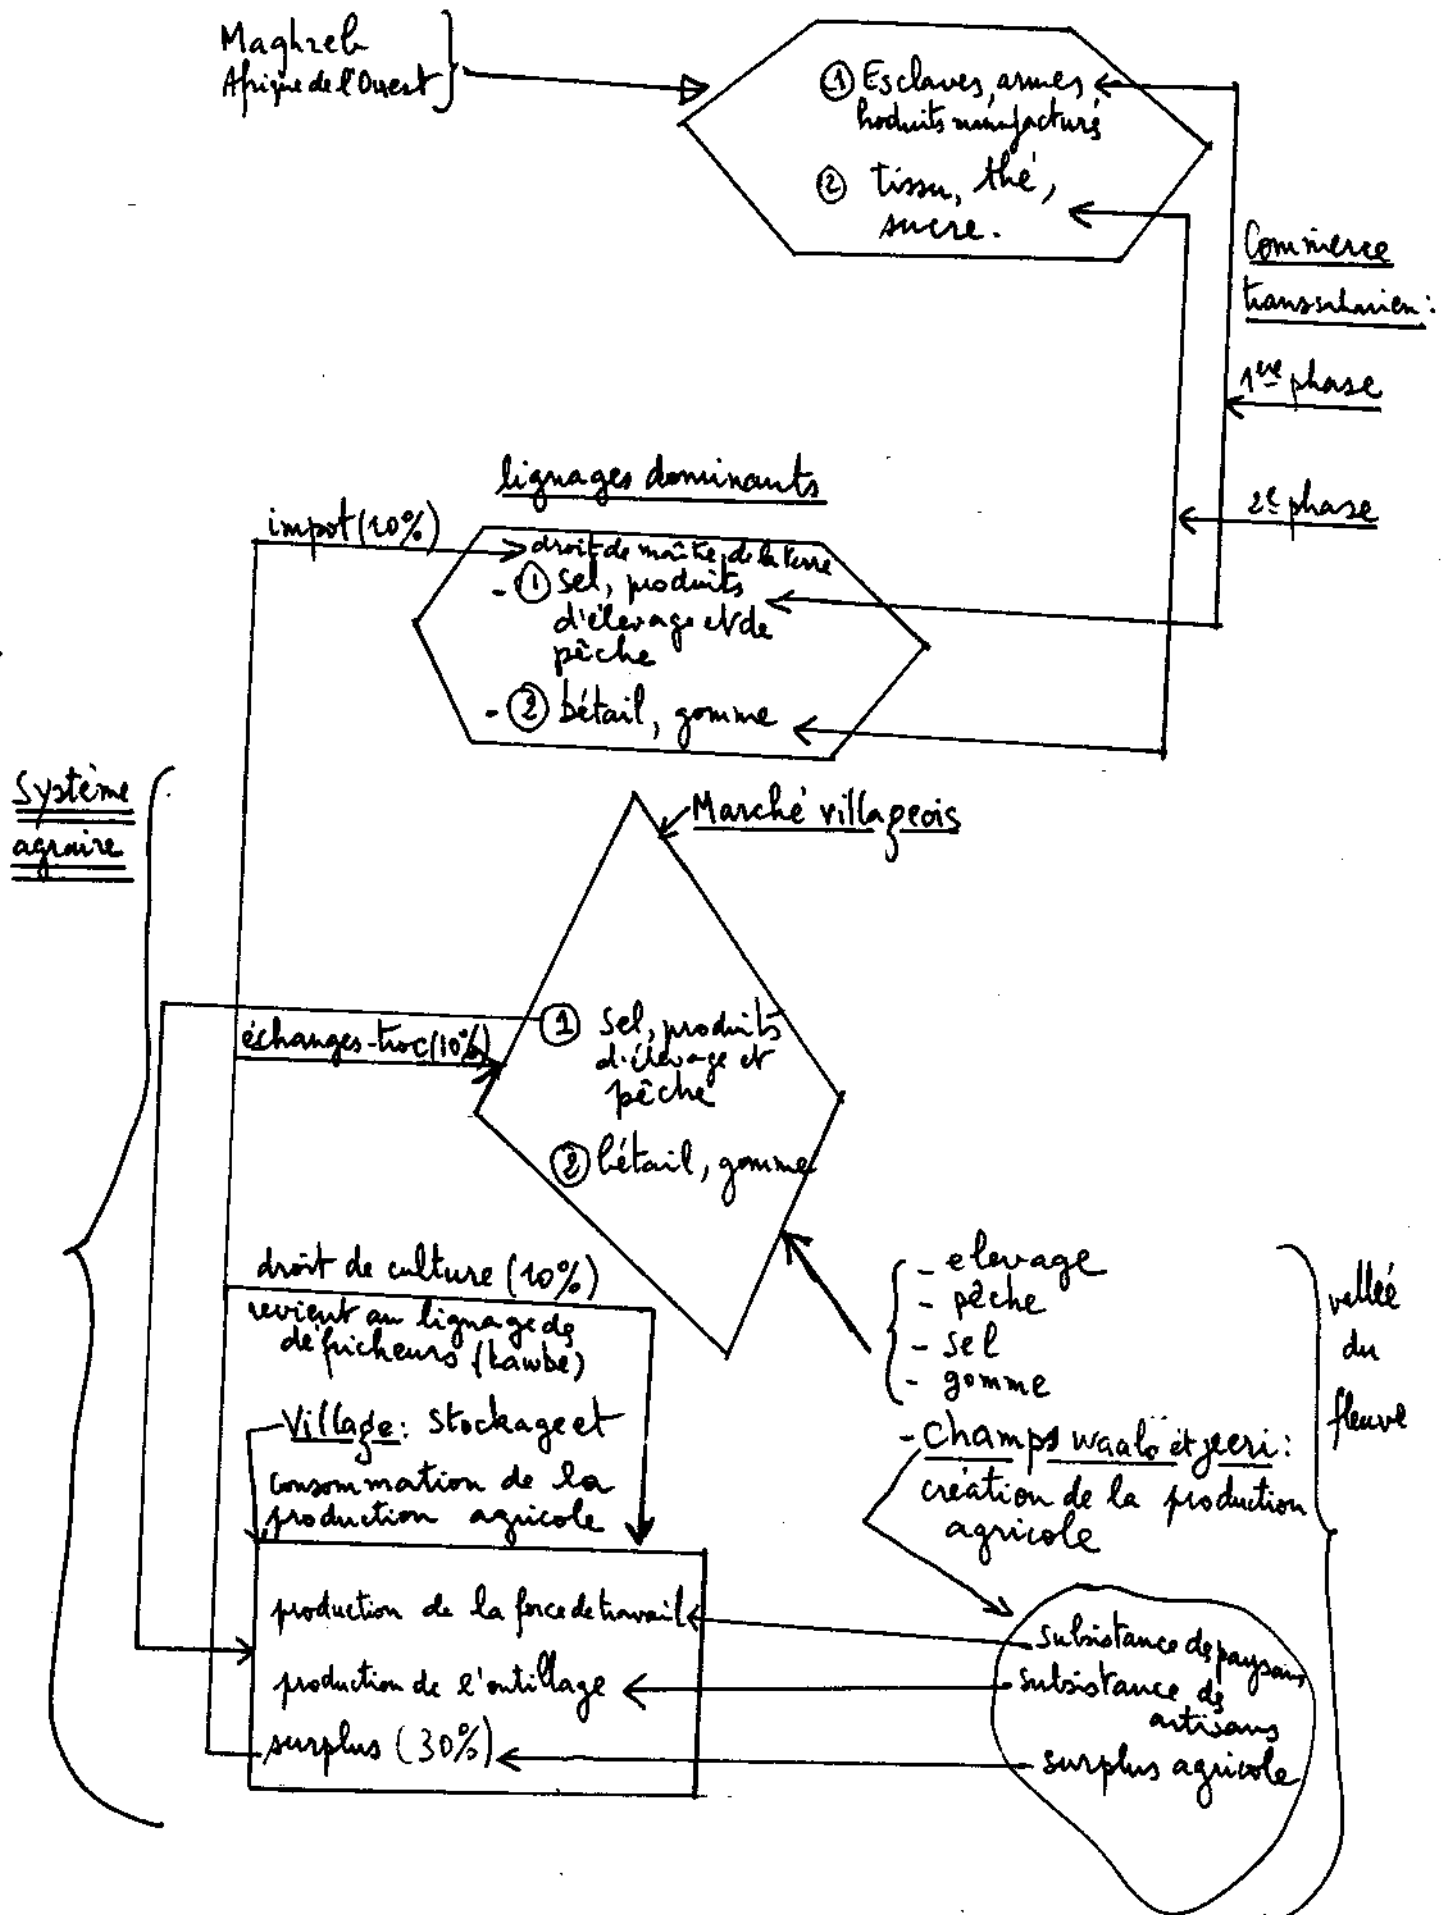 Maghreb
Afrique de l'Ouest
① Esclaves, armes,
Produits manufacturés
② tissu, thé,
sucre.
Commerce
transsaharien :
1ère phase
2e phase
lignages dominants
impot (10%)
droit de maître de la terre
- ① Sel, produits
d'élevage et de
pêche
- ② bétail, gomme
Système
agraire
Marché villageois
① Sel, produits
d'élevage et
pêche
② bétail, gomme
échanges-troc (10%)
droit de culture (10%)
revient au lignage des
défricheurs (
Village : Stockage et
consommation de la
production agricole
- elevage
- pêche
- sel
- gomme
- champs waalo et jeeri :
création de la production
agricole
vallée
du
fleuve
production de la force de travail
production de l'outillage
surplus (30%)
subsistance des paysans
subsistance des
artisans
surplus agricole